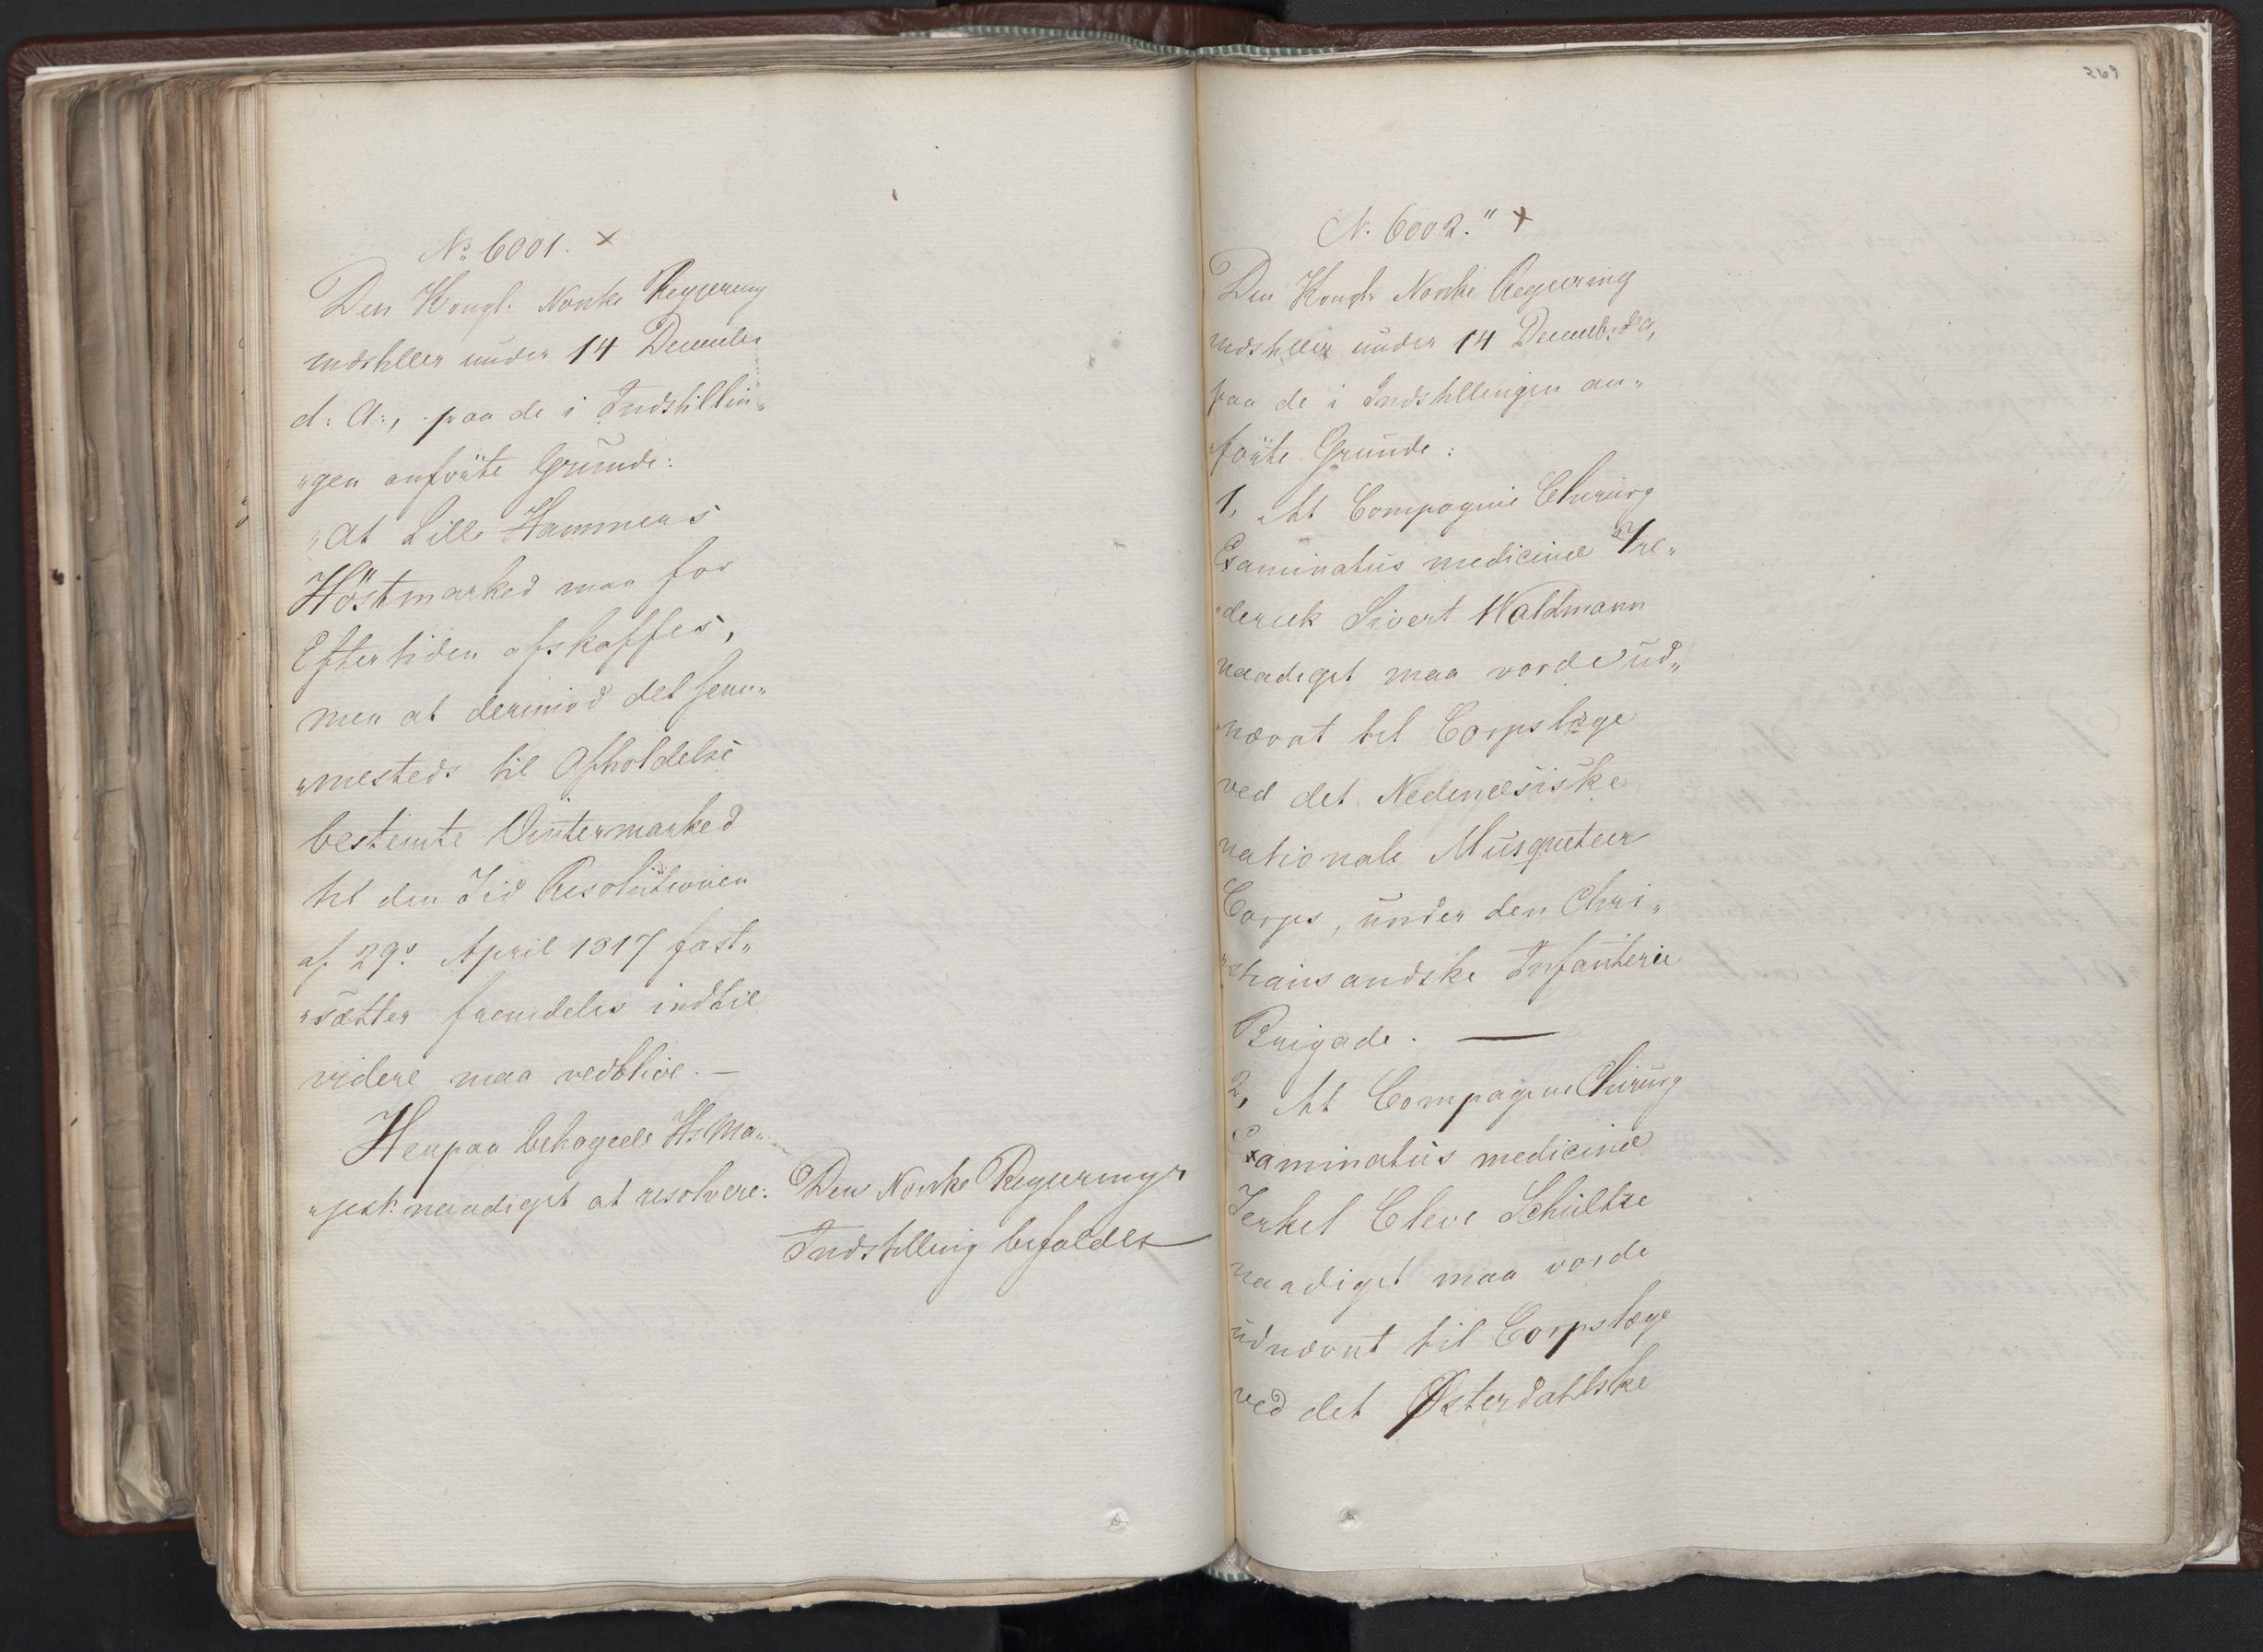 No 6001. x
Den Kongl. Norske Regjering
indstiller under 14 December
d: A:, paa de i Indstillin„
„gen anförte Grunde:
„At Lille Hammers
Höstmarked maa for
Eftertiden afskaffes,
men at derimod det sem„
„mesteds til Afholdelse
bestemte Vintermarked
til den Tid Resolutionen
af 29de April 1817 fast„
„sætter fremdeles indtil
videre maa vedblive. —
Herpaa behagede Hs Ma„
„jest: naadigst at resolvere:
Den Norske Regjerings
Indstilling bifaldes
269
N. 6002." x
Den Kongl. Norske Regjering
indstiller under 14 Decemb: d: A,
paa de i Indstillingen an„
„förte Grunde:
1, At Compagnie Chirurg
Examinatus medicinæ Fre„
„derick Sivert Waldmann
naadigst maa vorde ud„
„nævnt til Corpslæge
ved det Nedenæsiske
nationale Musqueteer
Corps, under den Chri„
„stiansandske Infanterie
Brigade. —
2, At Compagnie Chirurg
Examinatus medicinæ
Terkel Cleve Schultze
naadigst maa vorde
udnævnt til Corpslæge
ved det Østerdahlske